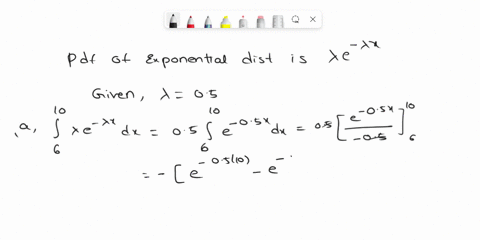 Pdf of Exponential dist is λe^{-λx}
Given, λ = 0.5
a, ∫_6^10 λe^{-λx} dx = 0.5 ∫_6^10 e^{-0.5x} dx = 0.5 [e^{-0.5x}/-0.5]_6^10
= - [e^{-0.5(10)} - e^{-